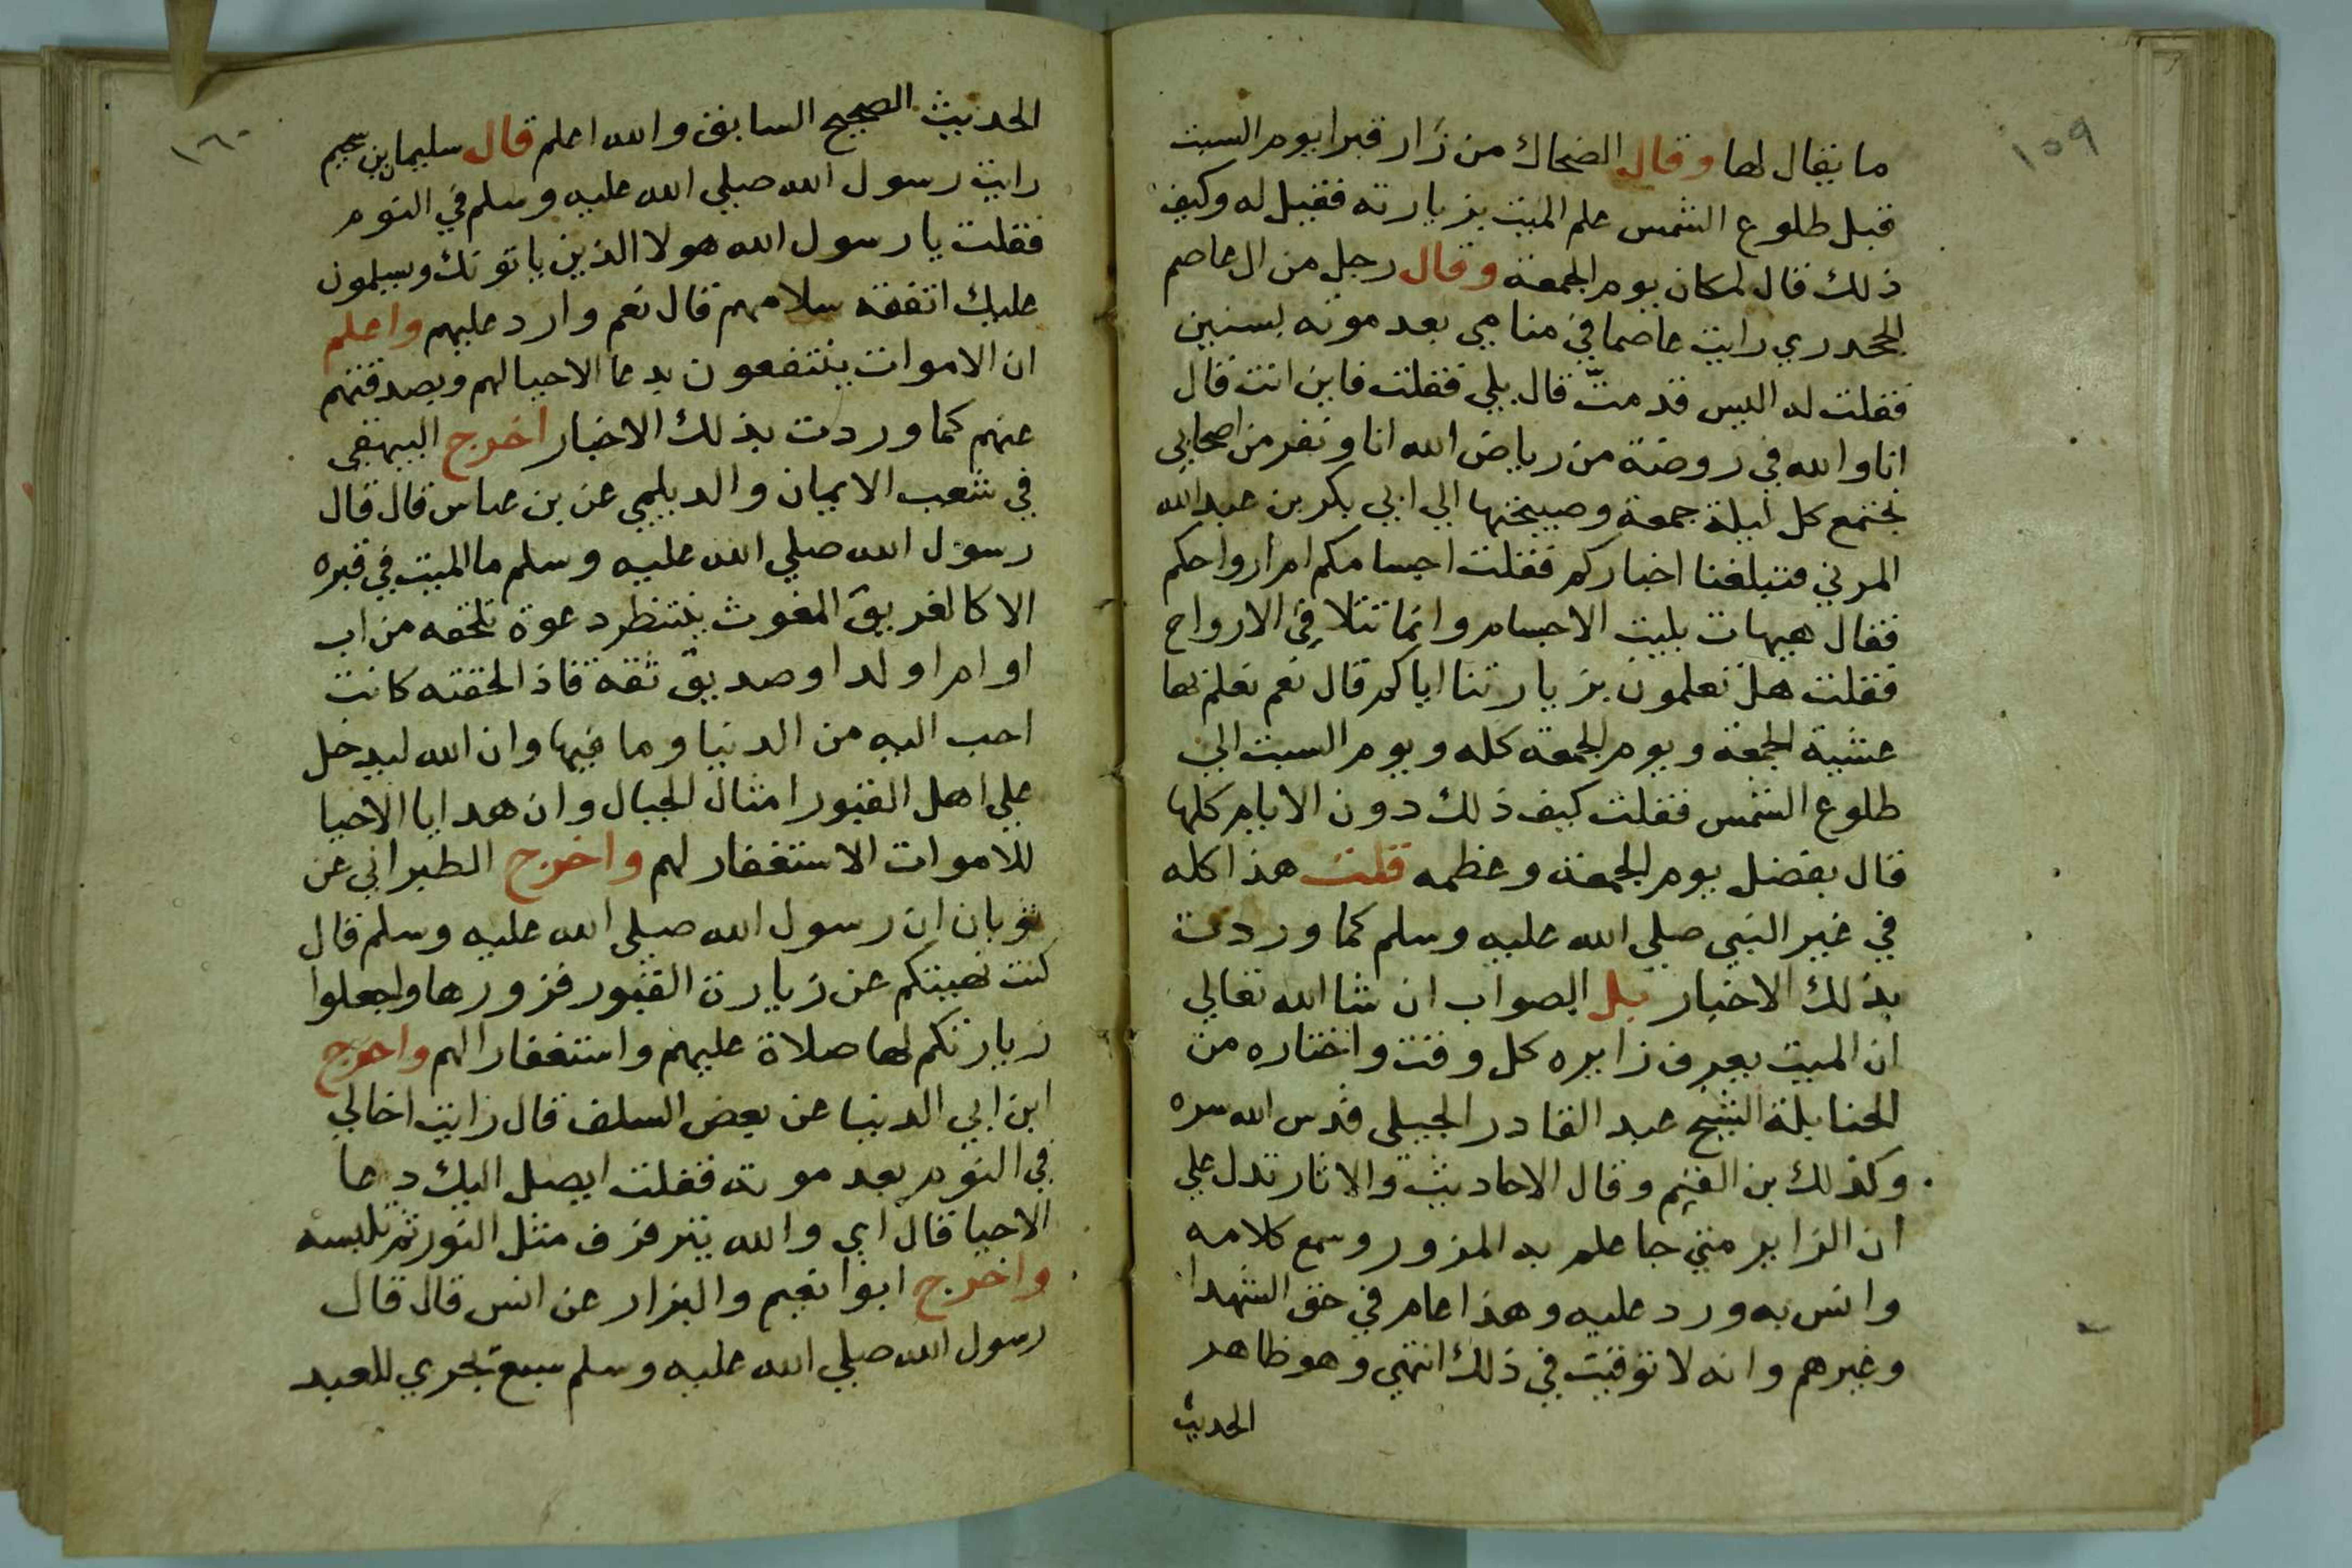 ١٥٩
ما يقال لها وقال الضحاك من زار قبرا يوم السبت
قبل طلوع الشمس علم الميت بزيارته فقيل له وكيف
ذلك قال لمكان يوم الجمعة وقال رجل من ال عاصم
الجحدري رايت عاصما في منامي بعد موته بسنين
فقلت له اليس قد متّ قال بلي فقلت فاين انت قال
انا والله في روضة من رياض الله انا ونفر من اصحابي
نجتمع كل ليلة جمعة وصبيحتها الي ابي بكر بن عبد الله
المرني فتبلغنا اخباركم فقلت اجسامكم ام ارواحكم
فقال هيهات بليت الاجسام وانما تتلاقي الارواح
فقلت هل تعلمون بزيارتنا اياكم قال نعم نعلم بها
عشية الجمعة ويوم الجمعة كله ويوم السبت الي
طلوع الشمس فقلت كيف ذلك دون الايام كلها
قال بفضل يوم الجمعة وعظمه قلت هذا كله
في غير النبي صلي الله عليه وسلم كما وردت
بذلك الاخبار بل الصواب ان شا الله تعالي
ان الميت يعرف زايره كل وقت واختاره من
الحنابلة الشيخ عبد القادر الجيلي قدس الله سره
وكذلك بن القيم وقال الاحاديث والاثار تدل علي
ان الزاير متي جا علم به المزور وسمع كلامه
وانس به ورد عليه وهذا عام في حق الشهدا
وغيرهم وانه لا توقيت في ذلك انتهي وهو ظاهر
الحديث
١٦٠
الحديث الصحيح السابق والله اعلم قال سليمان بن سحيم
رايت رسول الله صلي الله عليه وسلم في النوم
فقلت يا رسول الله هولا الذين ياتونك ويسلمون
عليك اتفقه سلامهم قال نعم وارد عليهم واعلم
ان الاموات ينتفعون بدعا الاحيا لهم وبصدقتهم
عنهم كما وردت بذلك الاخبار اخرج البيهقي
في شعب الايمان والديلمي عن بن عباس قال قال
رسول الله صلي الله عليه وسلم ما الميت في قبره
الا كالغريق المغوث ينتظر دعوة تلحقه من اب
او ام او ولد او صديق ثقة فاذا لحقته كانت
احب اليه من الدنيا وما فيها وان الله ليدخل
علي اهل القبور امثال الجبال وان هدايا الاحيا
للاموات الاستغفار لهم واخرج الطبراني عن
ثوبان ان رسول الله صلي الله عليه وسلم قال
كنت نهيتكم عن زيارة القبور فزورها واجعلوا
زيارتكم لها صلاة عليهم واستغفارا لهم واخرج
ابن ابي الدنيا عن بعض السلف قال رايت اخالي
في النوم بعد موته فقلت ايصل اليك دعا
الاحيا قال اي والله يترفرف مثل النور ثم تلبسه
واخرج ابوا نعيم والبزار عن انس قال قال
رسول الله صلي الله عليه وسلم سبع تجري للعبد